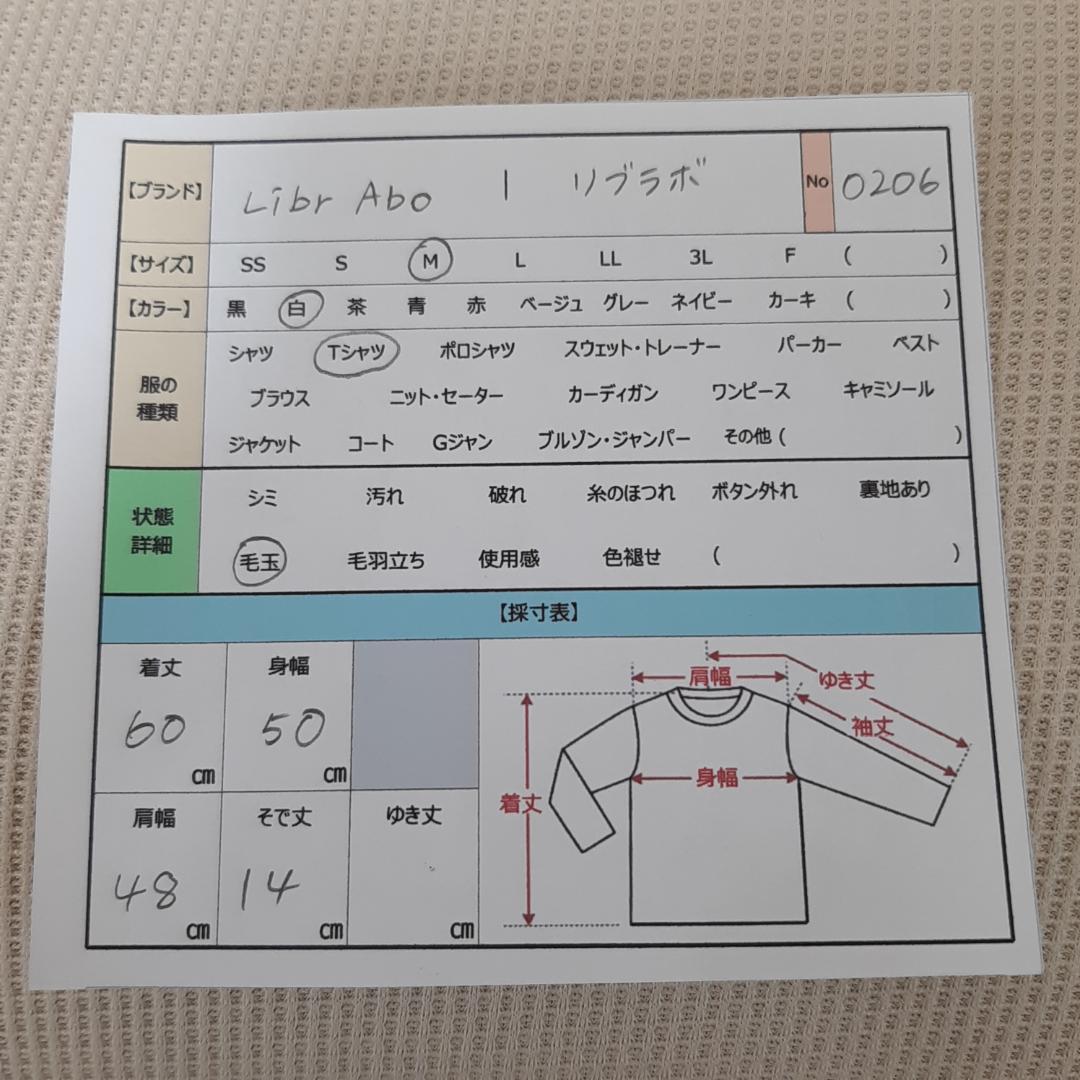 【ブランド】 Libr Abo | リブラボ No 0206
【サイズ】 SS S M L LL 3L F ( )
【カラー】 黒 白 茶 青 赤 ベージュ グレー ネイビー カーキ ( )
服の種類
シャツ Tシャツ ポロシャツ スウェット・トレーナー パーカー ベスト
ブラウス ニット・セーター カーディガン ワンピース キャミソール
ジャケット コート Gジャン ブルゾン・ジャンパー その他 ( )
状態詳細
シミ 汚れ 破れ 糸のほつれ ボタン外れ 裏地あり
毛玉 毛羽立ち 使用感 色褪せ ( )
【採寸表】
着丈 身幅
60 cm 50 cm
肩幅 そで丈 ゆき丈
48 cm 14 cm cm
肩幅 ゆき丈
袖丈
身幅
着丈